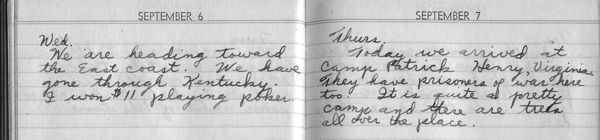 SEPTEMBER 6
Wed.
We are heading toward
the East coast. We have
gone through Kentucky.
I won $11 playing poker.
SEPTEMBER 7
Thurs.
Today we arrived at
Camp Patrick Henry, Virginia.
They have prisoners of war here
too. It is quite a pretty
camp and there are trees
all over the place.